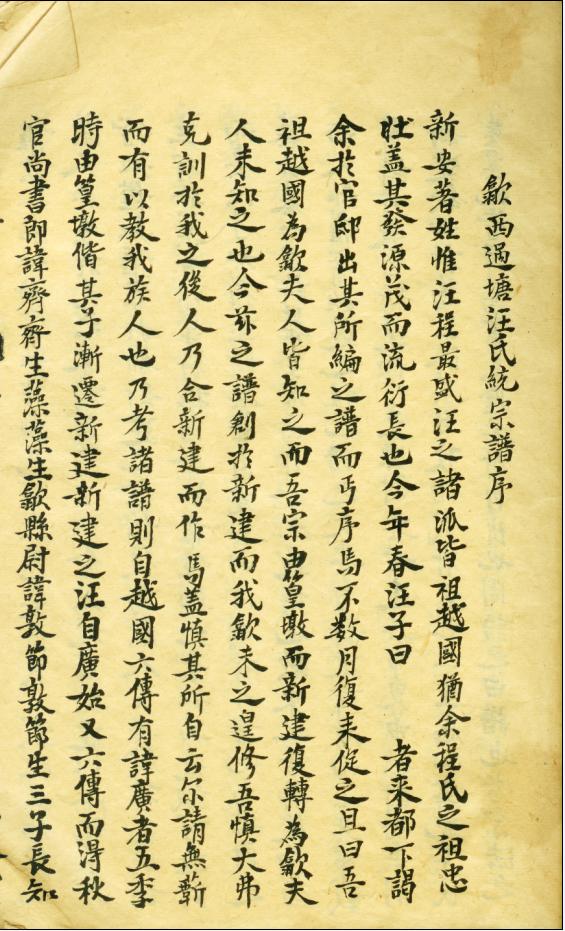 歙西過塘汪氏統宗譜序
新安著姓惟汪程最盛汪之諸派皆祖越國猶余程氏之祖忠
壯盖其發源茂而流衍長也今年春汪子曰　者來都下謁
余於官邸出其所編之譜而丐序焉不数月復来促之且曰吾
祖越國為歙夫人皆知之而吾宗由篁墩而新建復轉為歙夫
人未知之也今玆之譜創於新建而我歙未之遑修吾慎大弗
克訓於我之後人乃合新建而作焉盖慎其所自云尔請無蘄
而有以教我族人也乃考諸譜則自越國六傳有諱廣者五季
時由篁墩偕其子漸遷新建新建之汪自廣始又六傳而淂秋
官尚書郎諱齊齊生藻藻生歙縣尉諱敦節敦節生三子長知